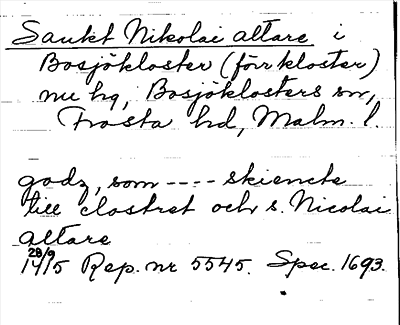 Sankt Nikolai altare i
Bosjökloster (förr kloster)
nu hg, Bosjöklosters sn,
Frosta hd, Malm. l.
godz, som ---- skiencte
till clostret och s. Nicolai
altare
28/9
1415 Rep. nr 5545. Spec. 1693.